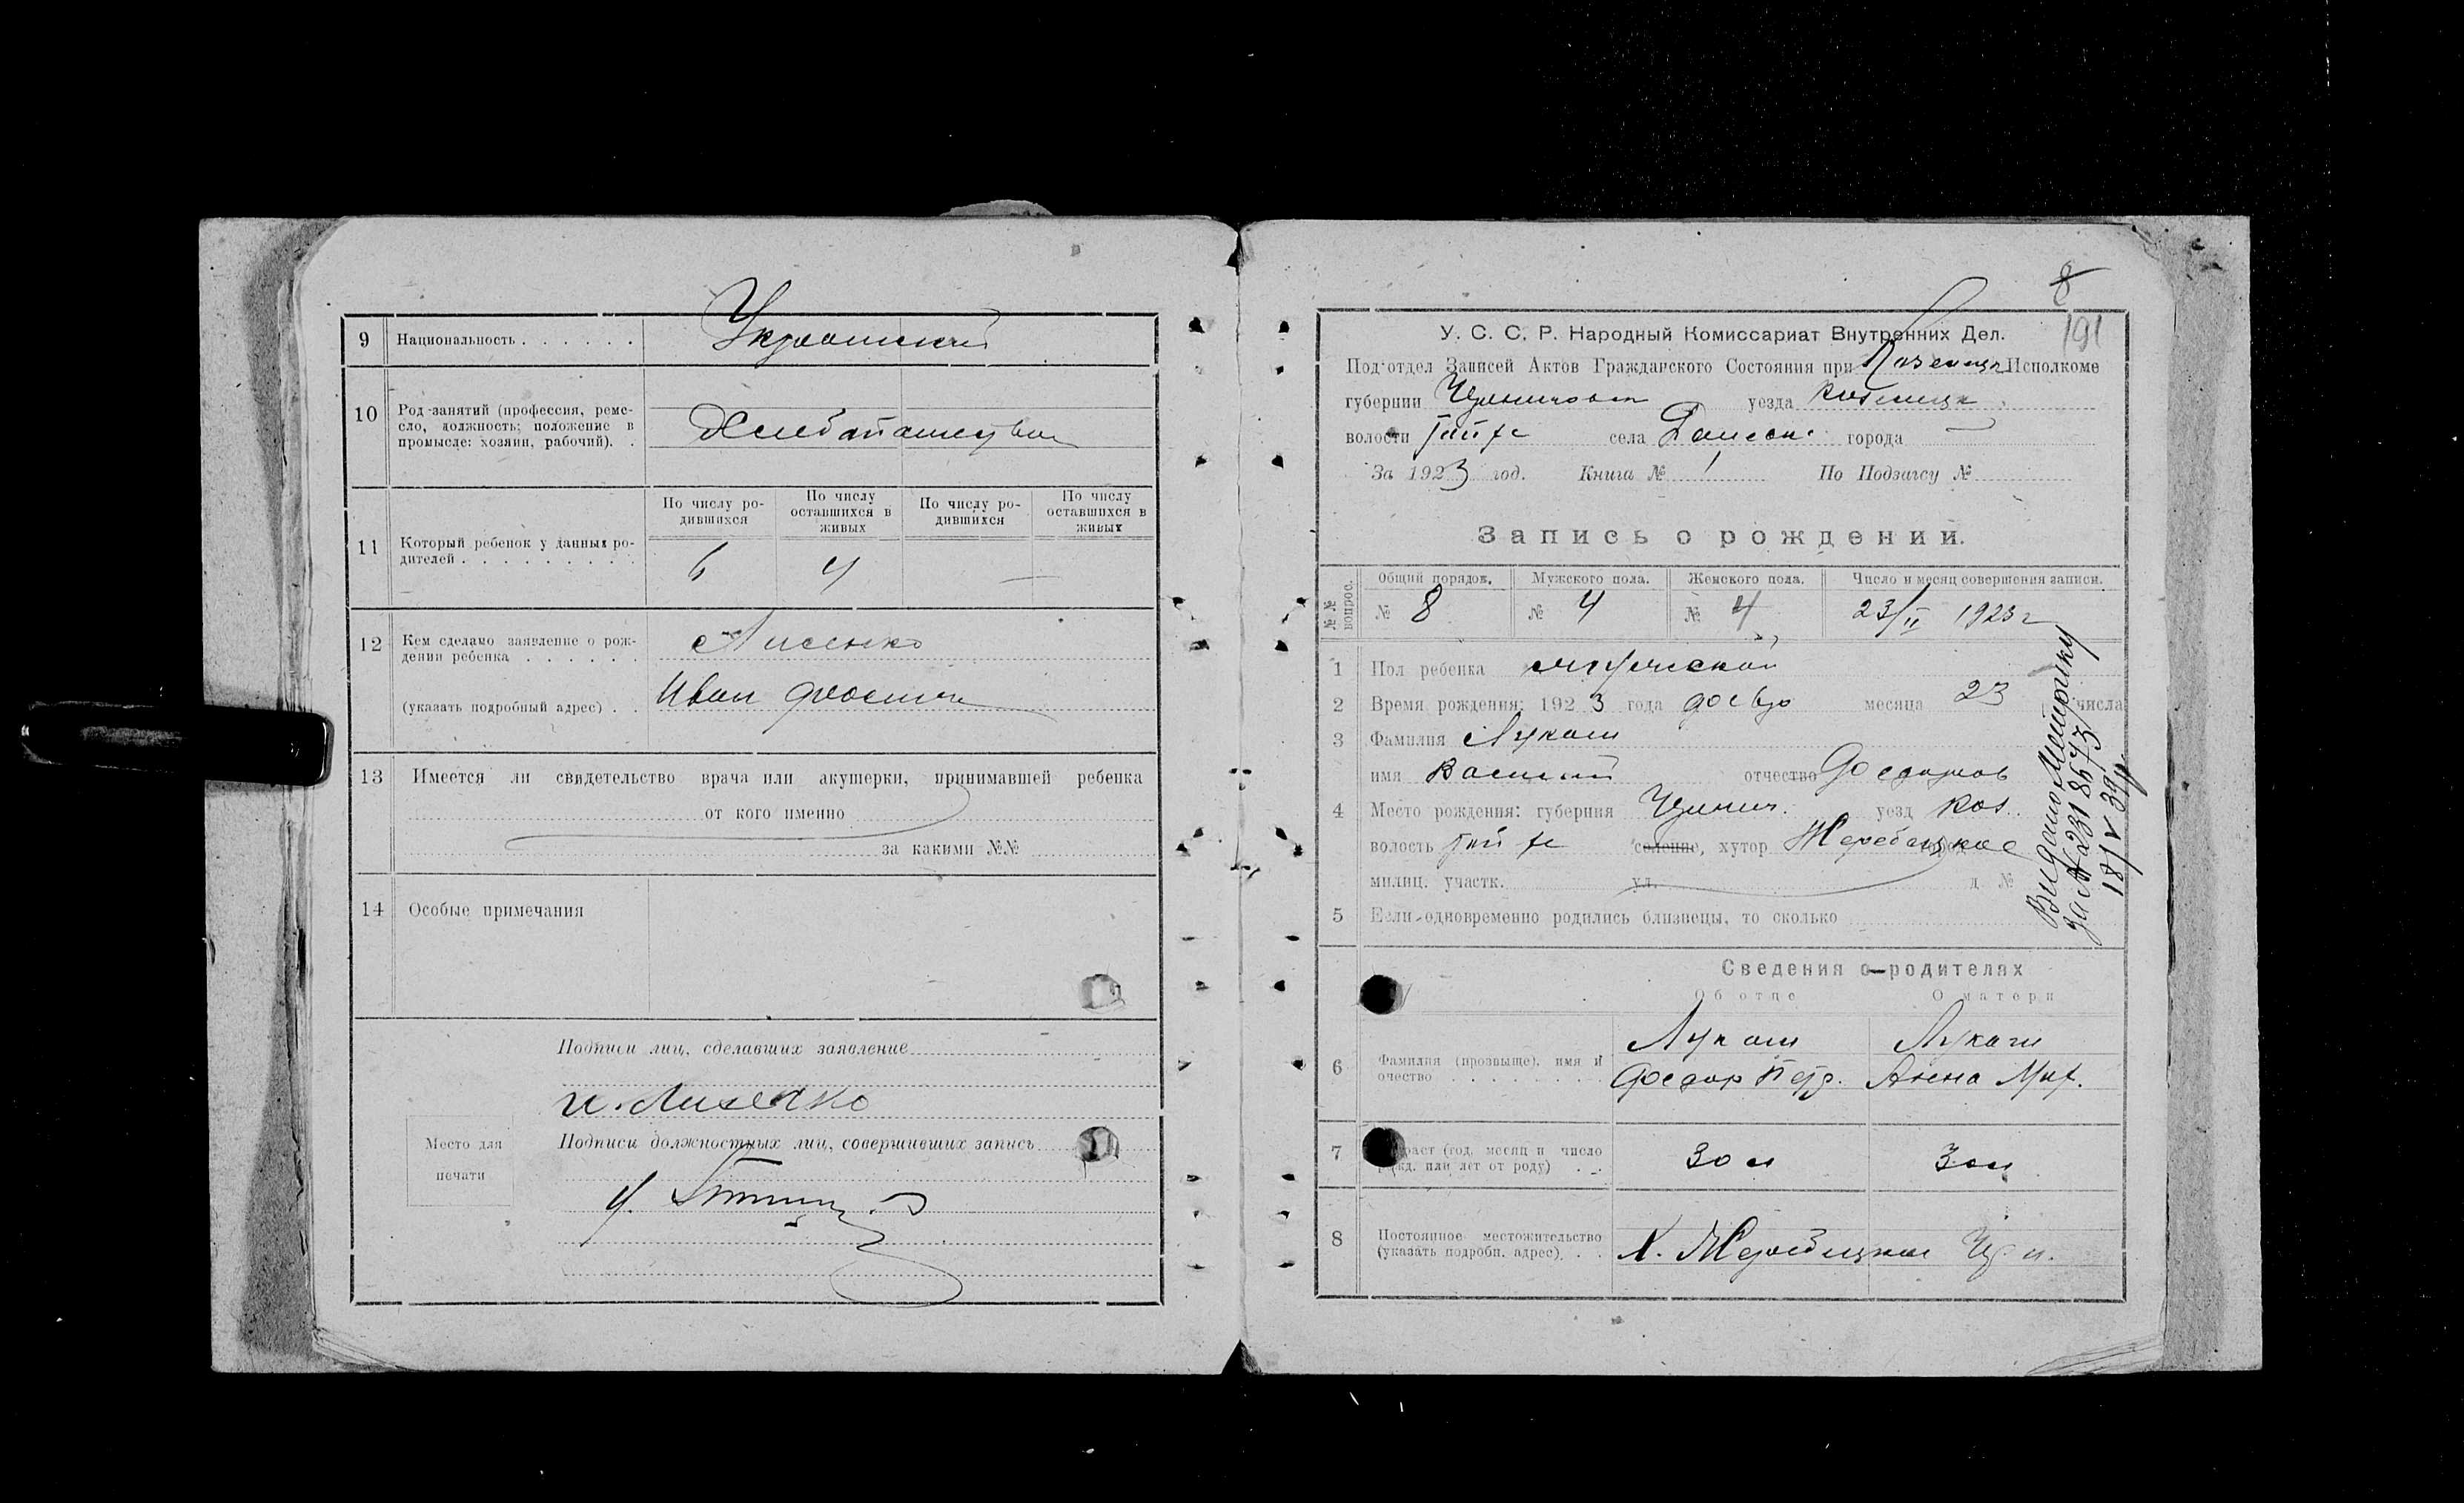 9 Национальность . . . . . . Украинский
10 Род занятий (профессия, ремесло, должность; положение в промысле: хозяин, рабочий). . Хлебопашество
11 Который ребенок у данных родителей . . . . . . . . .
По числу родившихся
По числу оставшихся в живых
По числу родившихся
По числу оставшихся в живых
6 4 —
12 Кем сделано заявление о рождении ребенка . . . . . . Лисенко
(указать подробный адрес) . . Иван
13 Имеется ли свидетельство врача или акушерки, принимавшей ребенка
от кого именно
за какими №№
14 Особые примечания
Подписи лиц, сделавших заявление
И. Лисенко
Место для печати
Подписи должностных лиц, совершивших запись
8
191
У. С. С. Р. Народный Комиссариат Внутренних Дел.
Подотдел Записей Актов Гражданского Состояния при Козелецк Исполкоме
губернии уезда Козелецк
волости села города —
За 1923 год. Книга № 1 По Подзагсу №
Запись о рождении.
№№ вопрос.
Общий порядов. Мужского пола. Женского пола. Число и месяц совершения записи.
№ 8 № 4 № 4 23/II 1923 г
1 Пол ребенка мужской
2 Время рождения: 1923 года месяца 23 числа
3 Фамилия Лукаш
имя Василий отчество Федоров
4 Место рождения: губерния уезд Коз.
волость селение, хутор Жеребецкое
милиц. участк. ул. д №
5 Если одновременно родились близнецы, то сколько
Видано Метрику
за № 2318673
18/V 39р
Сведения о родителях
Об отце О матери
6 Фамилия (прозвище), имя и очество . . . . . . . .
Лукаш Лукаш
Федор Петр. Анна Мих.
7 раст (год, месяц и число жд. или лет от роду) . . 30 л 30 л
8 Постоянное местожительство (указать подробн. адрес). . . Х. Жеребецкое